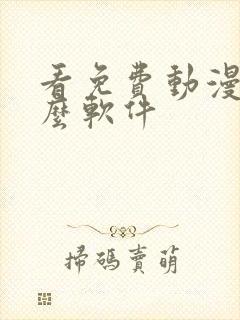 看免費動漫
麼軟件
掃碼賣萌